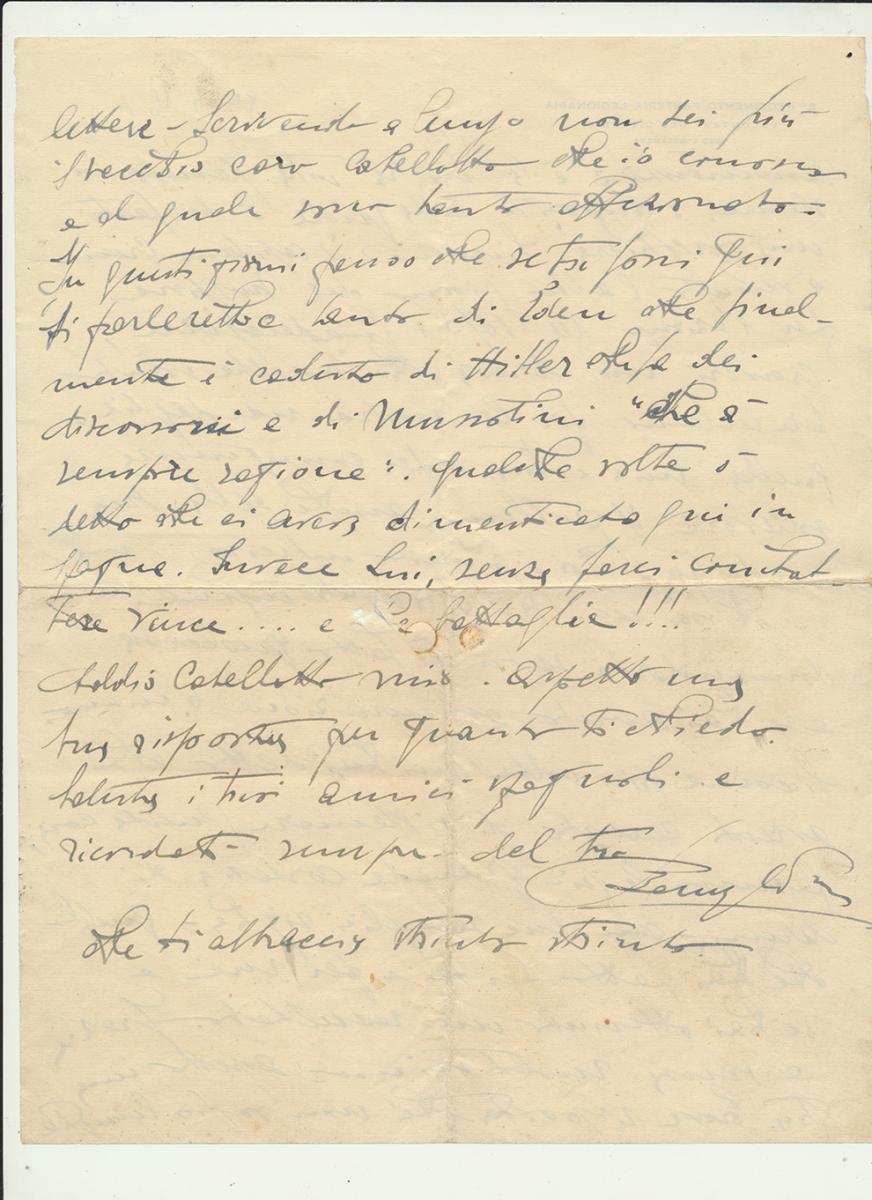 lettere - Scrivendo a lungo non sei più
il vecchio caro Catellotto che io conosco
e al quale sono tanto affezionato -
In questi giorni penso che se tu fossi qui
si parlerebbe tanto di Eden che final-
mente è caduto di Hitler che fa dei
discorsoni e di Mussolini "che à
sempre ragione". Qualche volta ò
detto che ci aveva dimenticato qui in
Spagna. Invece Lui, senza farci combat-
tere vince .... e che battaglie!!!
Addio Catellotto mio. Aspetto una
tua risposta per quanto ti chiedo.
Saluta i tuoi amici spagnoli e
ricordati sempre del tuo
che ti abbraccia stretto stretto